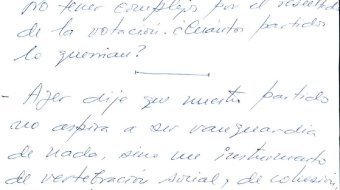 no tener complejos por el resultado
de la votación. ¿Cuántos partidos
lo querrían?
- Ayer dije que nuestro partido
no aspira a ser vanguardia
de nada, sino un instrumento
de vertebración social, de cohesión,